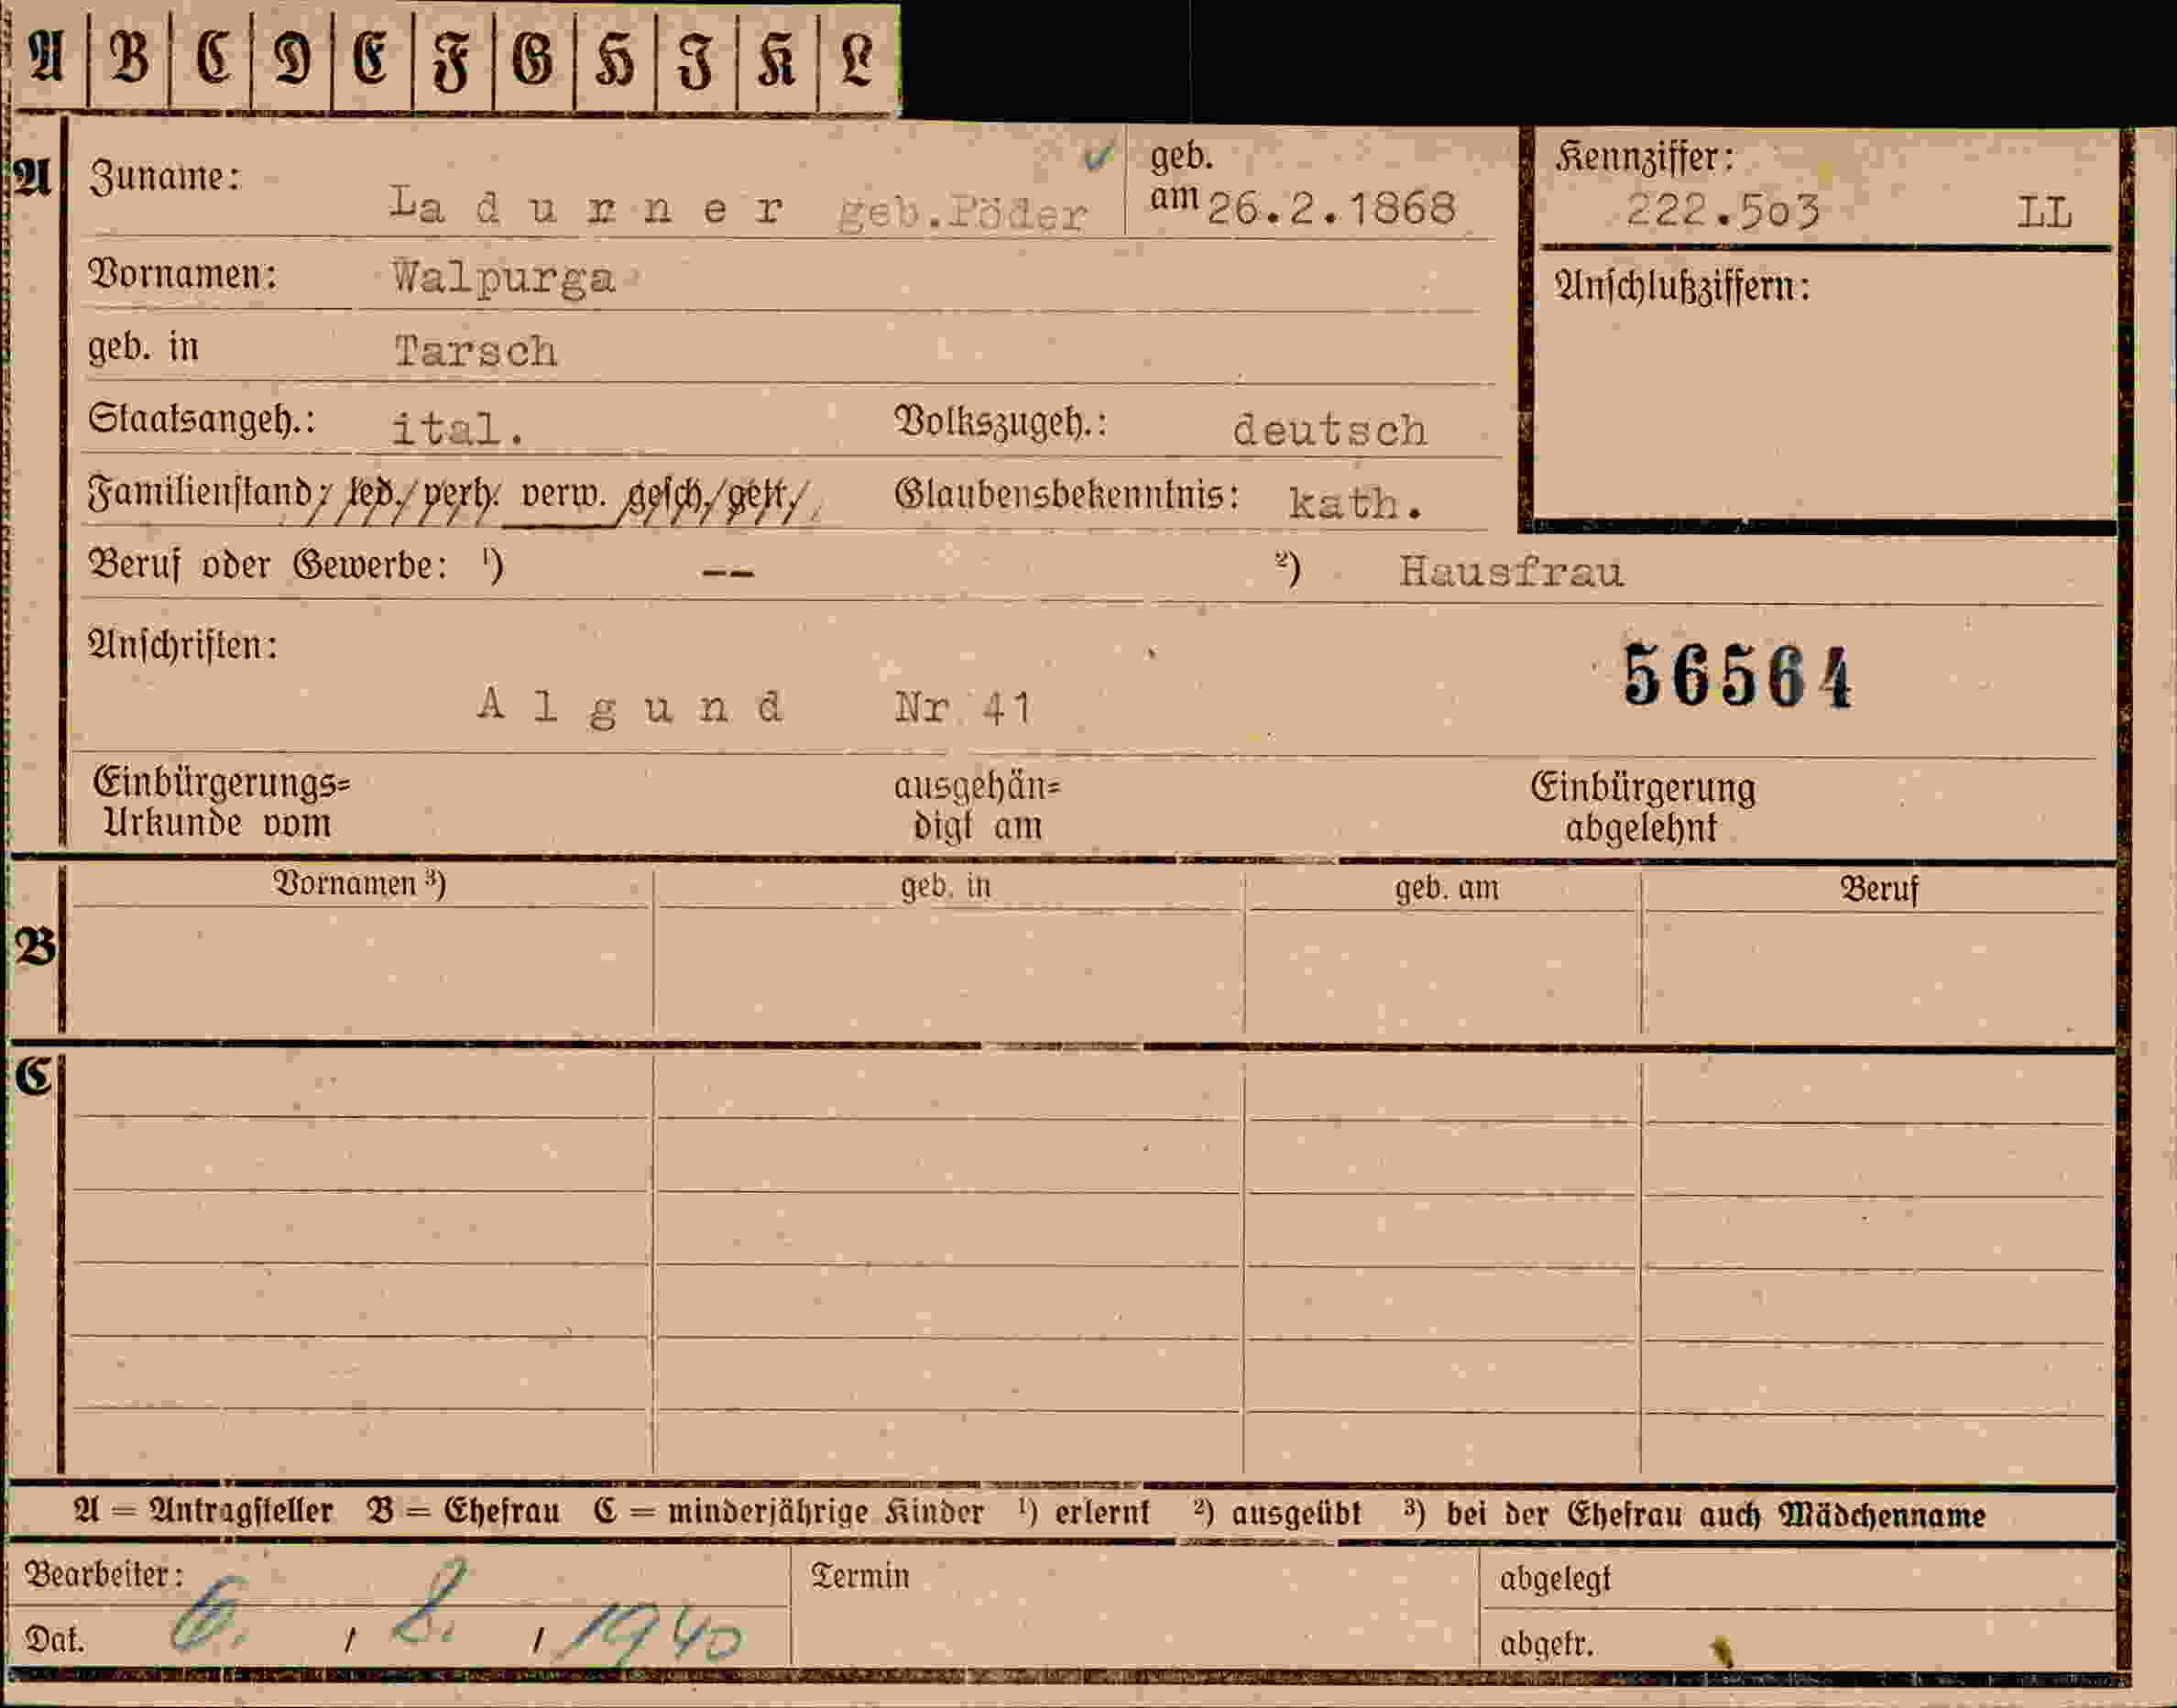 A B C D E F G H J K L
A Zuname: Ladurner geb.Pöder geb. am 26.2.1868 Kennziffer: 222.503 LL
Vornamen: Walpurga Anschlußziffern:
geb. in Tarsch
Staatsangeh.: ital. Volkszugeh.: deutsch
Familienstand: led./verh. verw. gesch./getr. Glaubensbekenntnis: kath.
Beruf oder Gewerbe: ¹) -- ²) Hausfrau
Anschriften: 56564
Algund Nr 41
Einbürgerungs= ausgehän= Einbürgerung
Urkunde vom digt am abgelehnt
Vornamen ³) geb. in geb. am Beruf
B
C
A = Antragsteller B = Ehefrau C = minderjährige Kinder ¹) erlernt ²) ausgeübt ³) bei der Ehefrau auch Mädchenname
Bearbeiter: Termin abgelegt
Dat. 6. / 2. / 1940 abgetr.